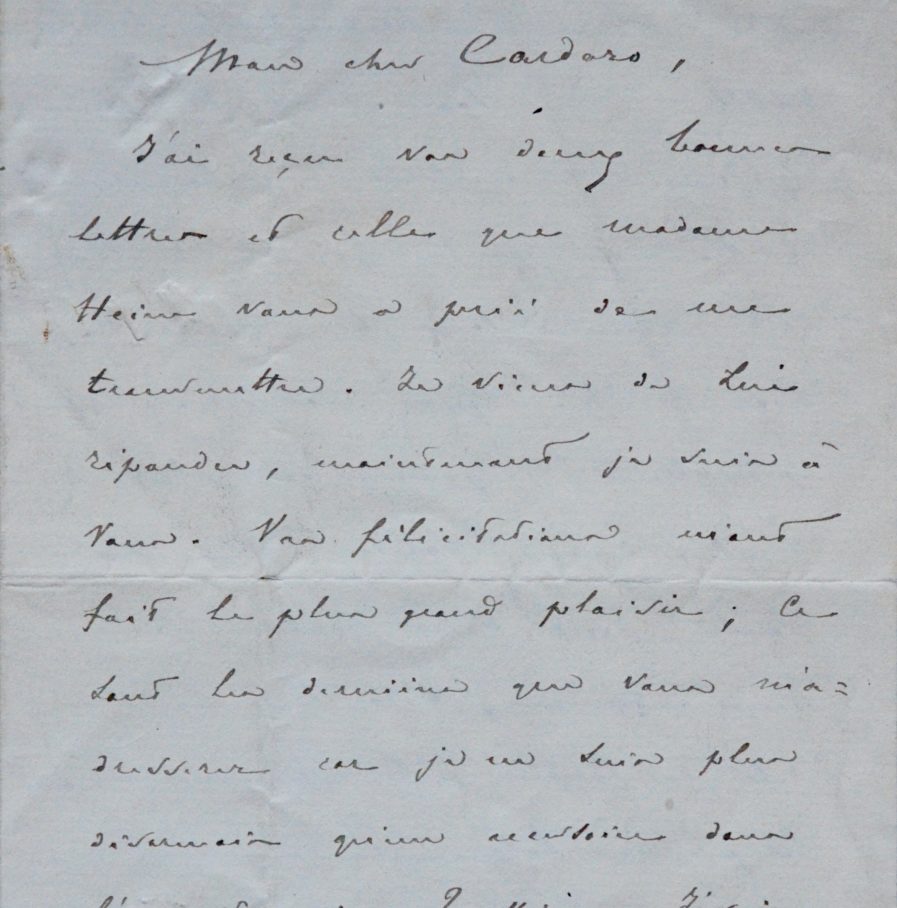 Mon cher Cardozo,
J'ai reçu vos deux bonnes
lettres et celle que madame
Heine vous a prié de me
transmettre. Je viens de lui
répondre, maintenant je suis à
vous. Vos félicitations m'ont
fait le plus grand plaisir; ce
sont les dernière que vous m'a=
dresserez car je ne suis plus
désormais qu'un accessoire dans